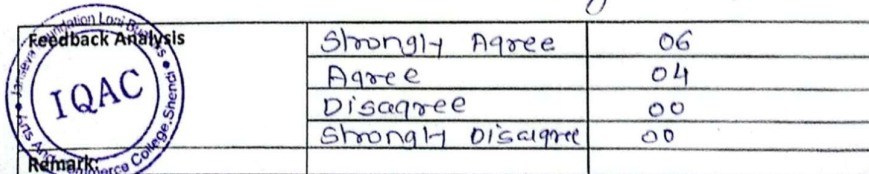 Feedback Analysis
Strongly Agree 06
Agree 04
Disagree 00
Strongly Disagree 00
Remark:
IQAC
Foundation Loni
Arts And Commerce College, Shendi